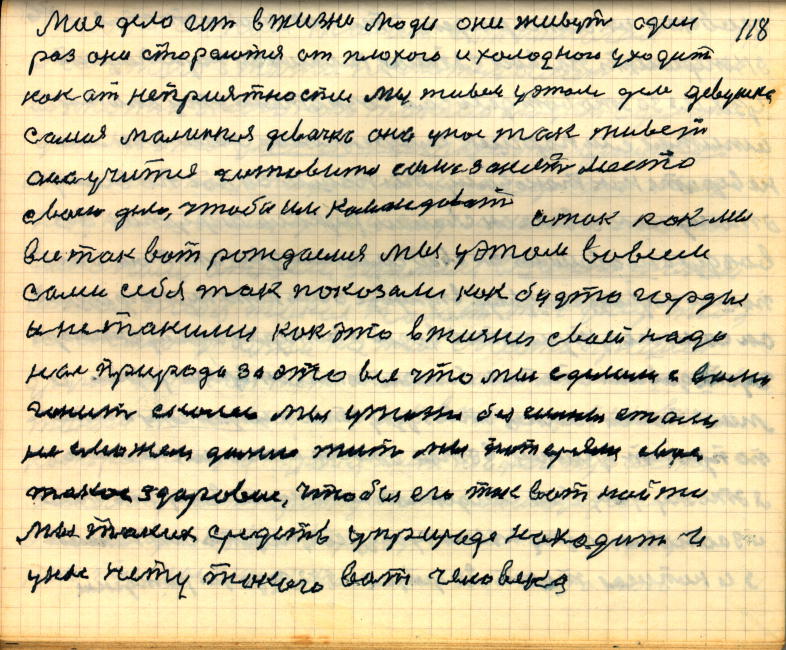 мое дело ит в жизни люди они живут один 118
раз они стораются от плохого и холодного уходит
как от неприятностеи мы живем у этом деле девушка
самая маличкоя девачка она у нас так живет
она учится готовится сама занять место
своего дела, чтобы им командоват а так как мы
все так вот рождаемся мы у этом вовсем
сами себя так показали как будто горды
а не такими как это в жизни своей надо
нас природа за это все что мы сделали с вами
гонит мы у жизни без стали
не сможем долго жить мы потеряли свое
такое здаровие, чтобы его так вот найти
мы таких средств у природе находим и
у нас нету такого вот человека